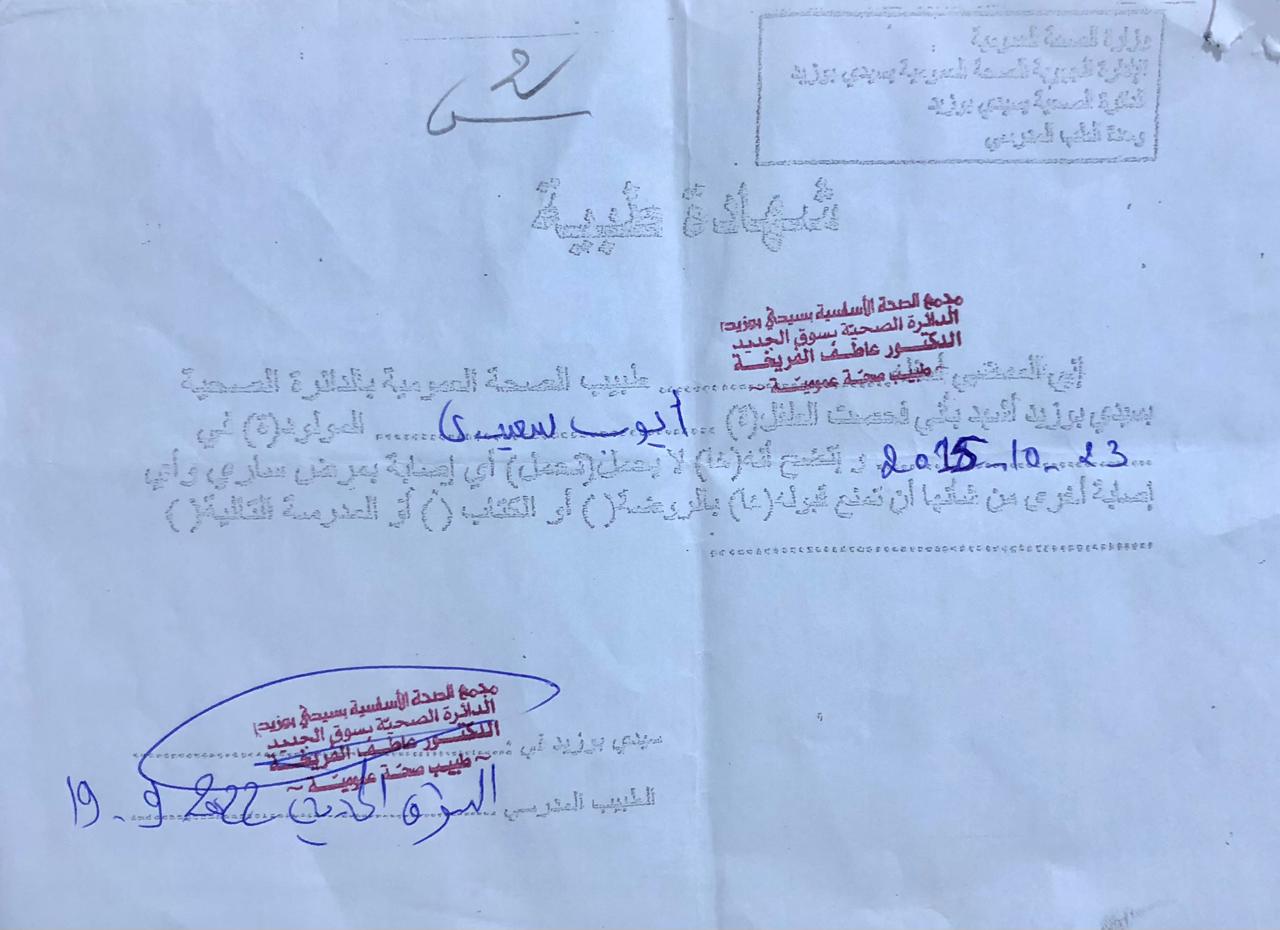 وزارة الصحة العمومية
الإدارة الجهوية للصحة العمومية بسيدي بوزيد
الدائرة الصحية بسيدي بوزيد
الطب المدرسي
شهادة طبية
مجمع الصحة الأساسية بسيدي بوزيد
الدائرة الصحية بسوق الجديد
الدكتور عاطف الفريخة
طبيب صحة عمومية
إني الممضي أسفله ............ طبيب الصحة العمومية بالدائرة الصحية
بسيدي بوزيد أشهد بأني فحصت الطفل(ة) ... أيوب سعيدي ... المولود(ة) في
23-10-2015 و إتضح أنه(ها) لا يحمل(تحمل) أي إصابة بمرض ساري و أي
إصابة أخرى من شأنها أن تمنع قبوله(ها) بالروضة( ) أو الكتاب ( ) أو المدرسة التالية( )
............................................
مجمع الصحة الأساسية بسيدي بوزيد
الدائرة الصحية بسوق الجديد
الدكتور عاطف الفريخة
~ طبيب صحة عمومية ~
سيدي بوزيد في : ............
الطبيب المدرسي السوق الجديد 2022 9 - 19